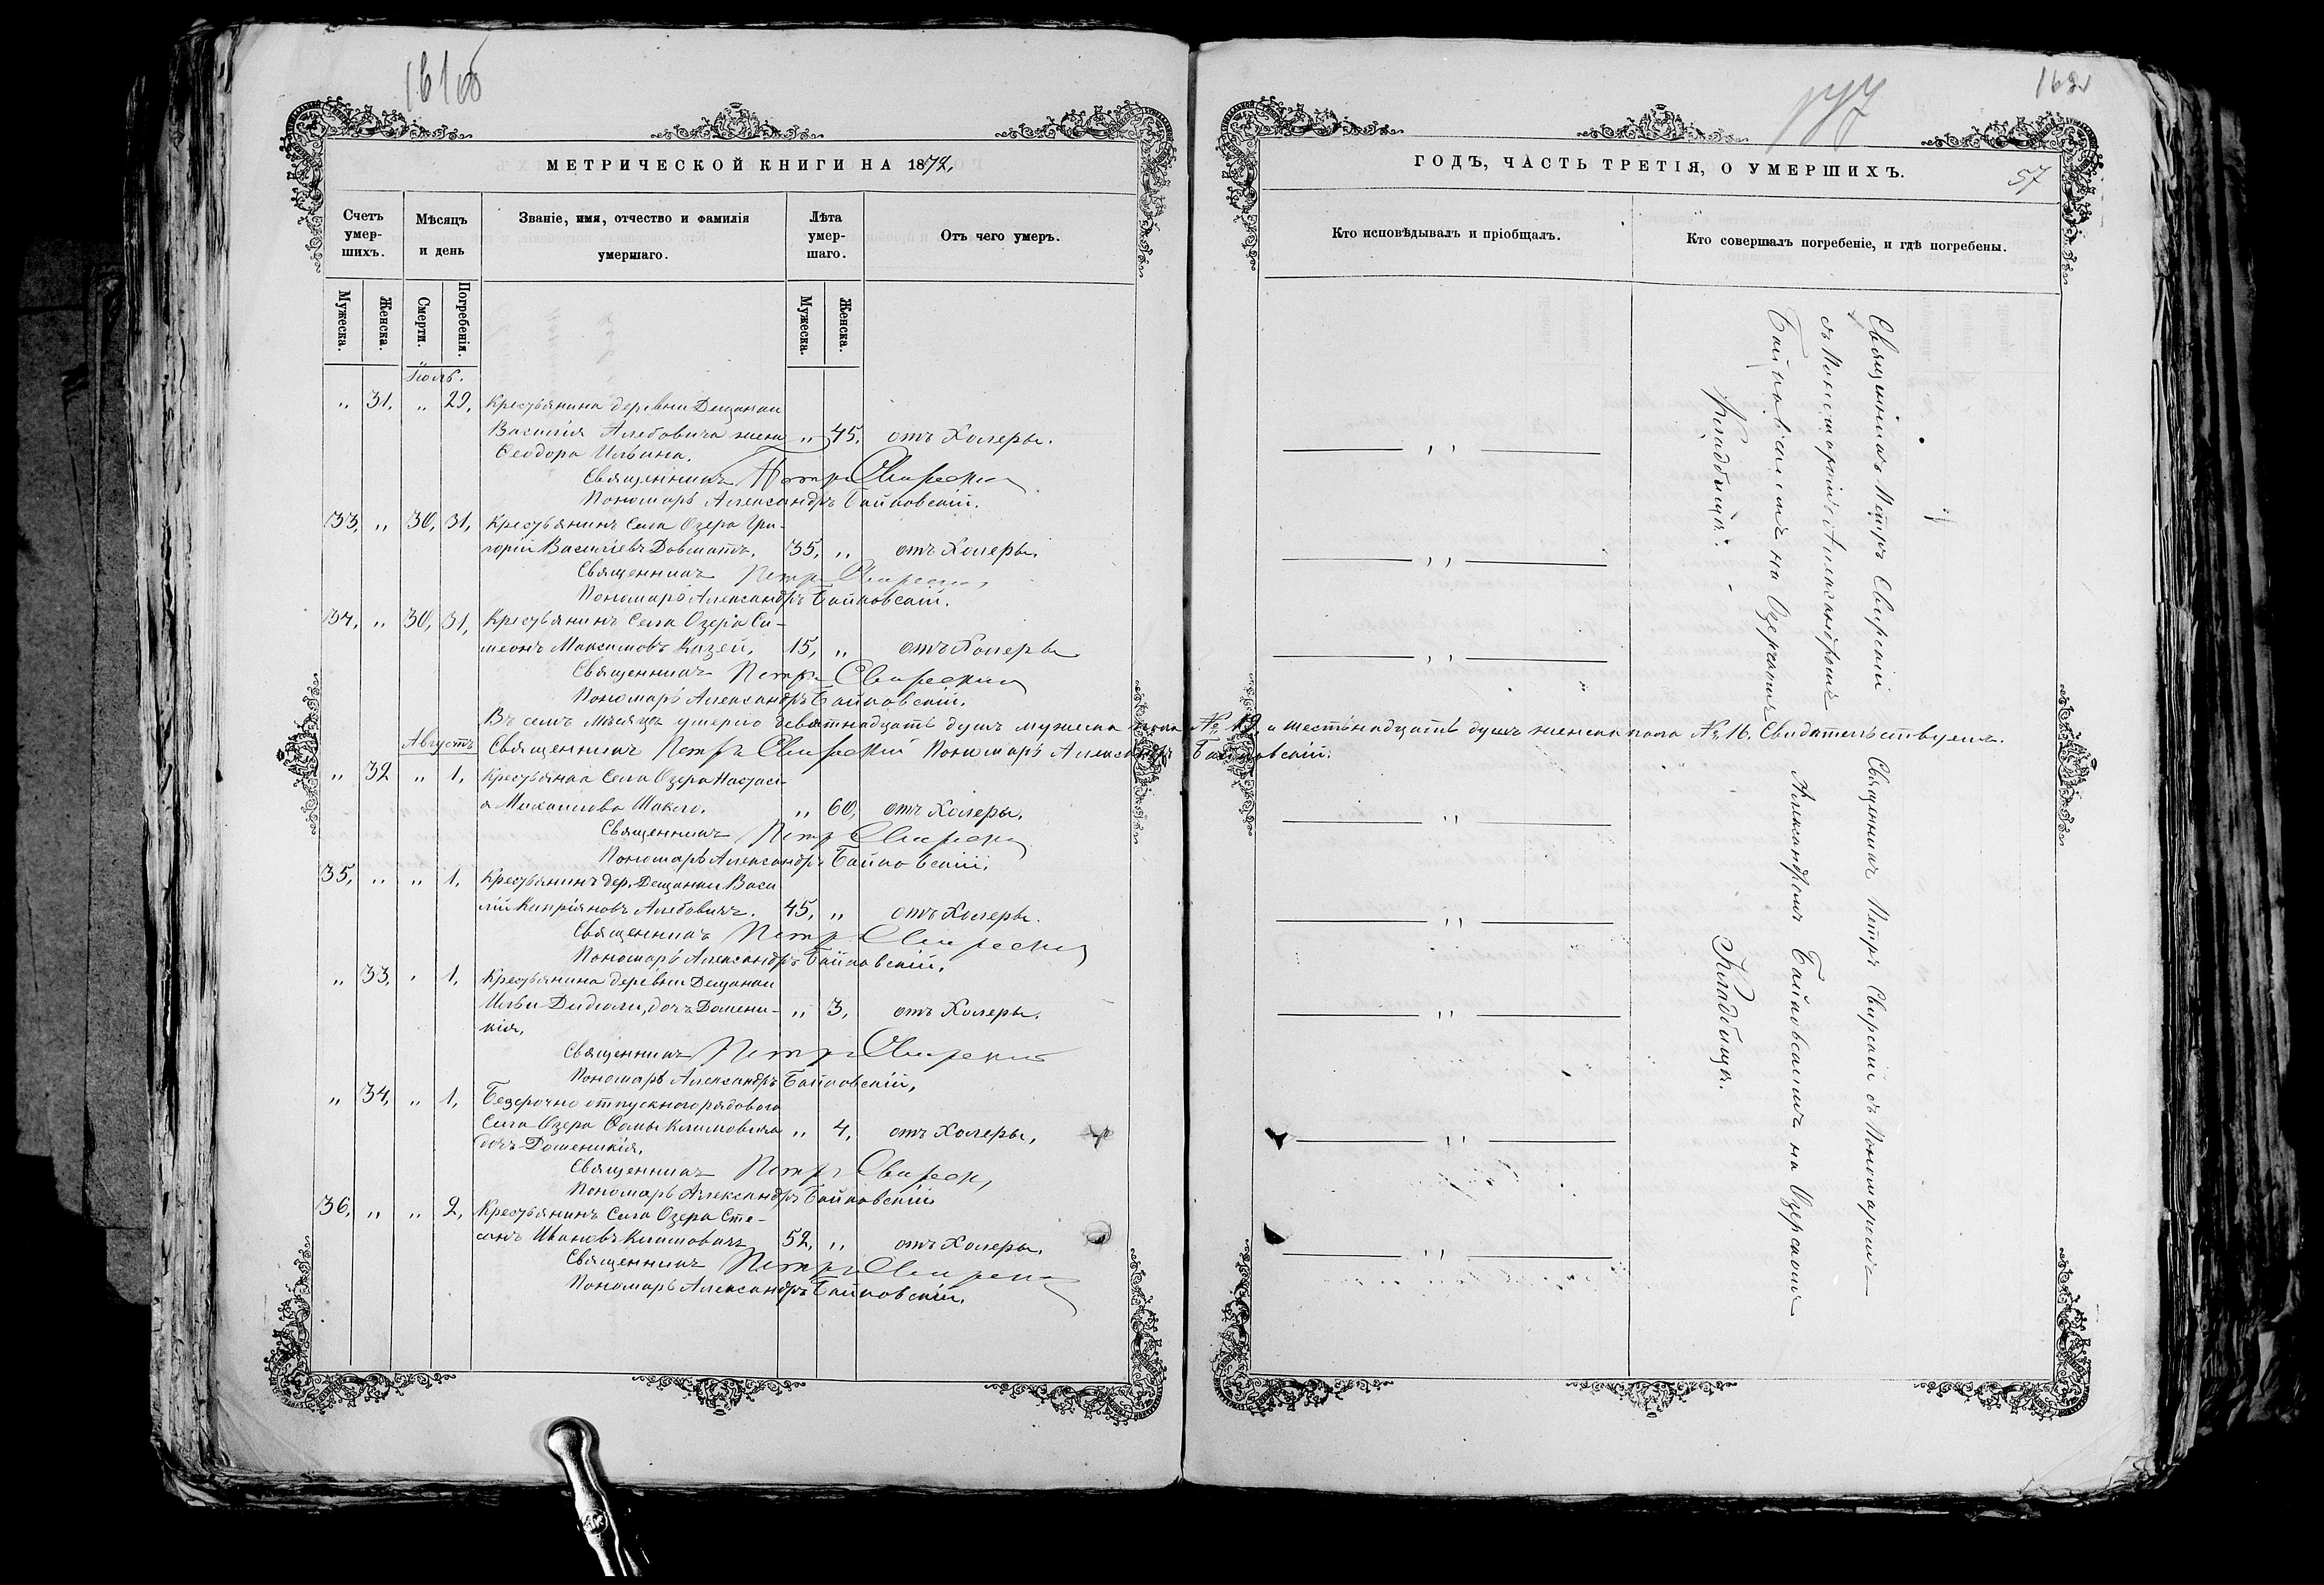 161 об
МЕТРИЧЕСКОЙ КНИГИ НА 1872,
Счетъ умер-шихъ.
Мѣсяцъ и день
Званіе, имя, отчество и фамилія умершаго.
Лѣта умер-шаго.
Отъ чего умеръ.
Мужеска.
Женска.
Смерти.
Погребенія.
Мужеска.
Женска.
Іюль.
„ 31, „ 29, Крестьянина деревни Дещанки
Василія Алебовича жена „ 45, отъ Холеры.
Ѳеодора Ильина.
Священникъ Петръ Свирскій
Пономарь Александръ Байковскій.
33, „ 30, 31, Крестьянинъ Села Озера Гри-
горій Василіевъ Довматъ, 35, „ отъ Холеры,
Священникъ Петръ Свирскій
Пономарь Александръ Байковскій.
34, „ 30, 31, Крестьянинъ Села Озера Си-
меонъ Максимовъ Казей, 15, „ отъ Холеры
Священникъ Петръ Свирскій
Пономарь Александръ Байковскій.
Въ семъ Мѣсяцѣ умерло девятнадцать душъ мужеска пола № 19, и шестьнадцать душъ женска пола № 16. Свидѣтельствуемъ.
Августъ Священникъ Петръ Свирскій Пономарь Александръ Байковскій.
„ 32 „ 1, Крестьянка Села Озера Настасі-
я Михаилова Шакого, „ 60, отъ Холеры,
Священникъ Петръ Свирскій
Пономарь Александръ Байковскій.
35, „ „ 1, Крестьянинъ дер. Дещанки Васи
лій Кипріяновъ Алебовичъ. 45, „ отъ Холеры.
Священникъ Петръ Свирскій
Пономарь Александръ Байковскій.
„ 33, „ 1, Крестьянина деревни Дещанки
Ильи Дидюли, дочь Домени- „ 3, отъ Холеры,
кія,
Священникъ Петръ Свирскій
Пономарь Александръ Байковскій,
„ 34, „ 1, Безсрочно отпускного рядового
Села Озера Ѳомы Климовича „ 4, отъ Холеры,
дочь Доменикія,
Священникъ Петръ Свирскій
Пономарь Александръ Байковскій
36, „ „ 2, Крестьянинъ Села Озера Сте-
санъ Ивановъ Климовичъ 52, „ отъ Холеры,
Священникъ Петръ Свирскій
Пономарь Александръ Байковскій.
162
57
ГОДЪ, ЧАСТЬ ТРЕТІЯ, О УМЕРШИХЪ.
Кто исповѣдывалъ и пріобщалъ.
Кто совершалъ погребеніе, и гдѣ погребены.
Священникъ Петръ Свирскій
съ Пономаремъ Александромъ
Байковскимъ на Озерскомъ
Кладбищѣ.
Священникъ Петръ Свирскій съ Пономаремъ
Александромъ Байковскимъ на Озерскомъ
Кладбищѣ.